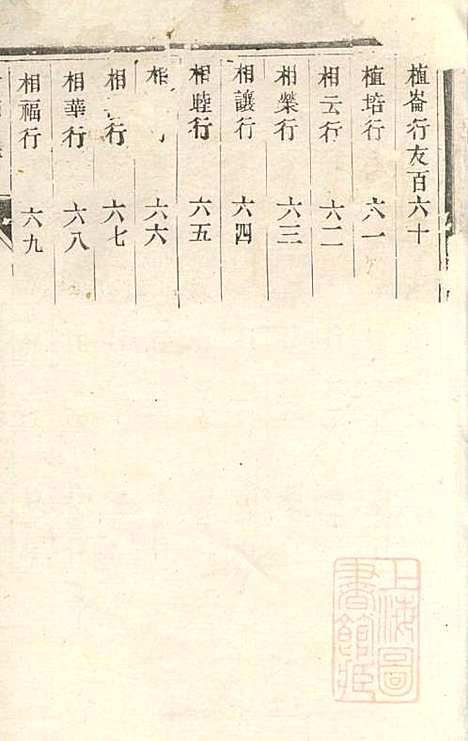 植崙行友百六十
植培行 六一
相云行 六二
相榮行 六三
相讓行 六四
相睦行 六五
相 六六
相 行 六七
相華行 六八
相福行 六九
上海圖書館藏